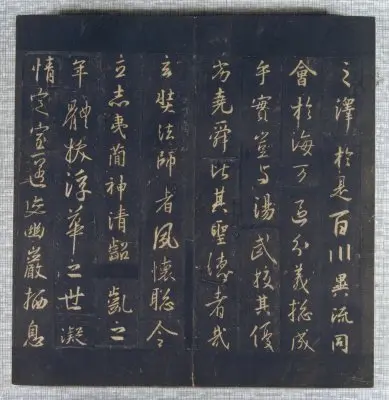 之澤於是百川異流同
會於海万區分義捴成
乎實豈与湯武挍其優
劣堯舜比其聖德者哉
玄奘法師者夙懷聡令
立志夷簡神清齠齔之
年體拔浮華之世凝
情定室匿迹幽巖栖息